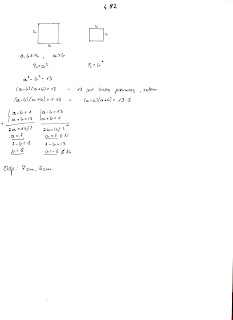 482
a
a
b
b
a, b ∈ N₊, a > b
P₁ = a²
P₂ = b²
a² - b² = 13
(a-b)(a+b) = 13 - 13 jest liczbą pierwszą, zatem
(a-b)(a+b) = 1·13 ∨ (a-b)(a+b) = 13·1
{ a-b = 1 { a-b = 13
+ { a+b = 13 { a+b = 1
2a = 14 |:2 2a = 14 |:2
a = 7 a = 7
7-b = 1 7-b = 13
b = 6 b = -6 ∉ N₊
Odp: 7cm, 6cm.